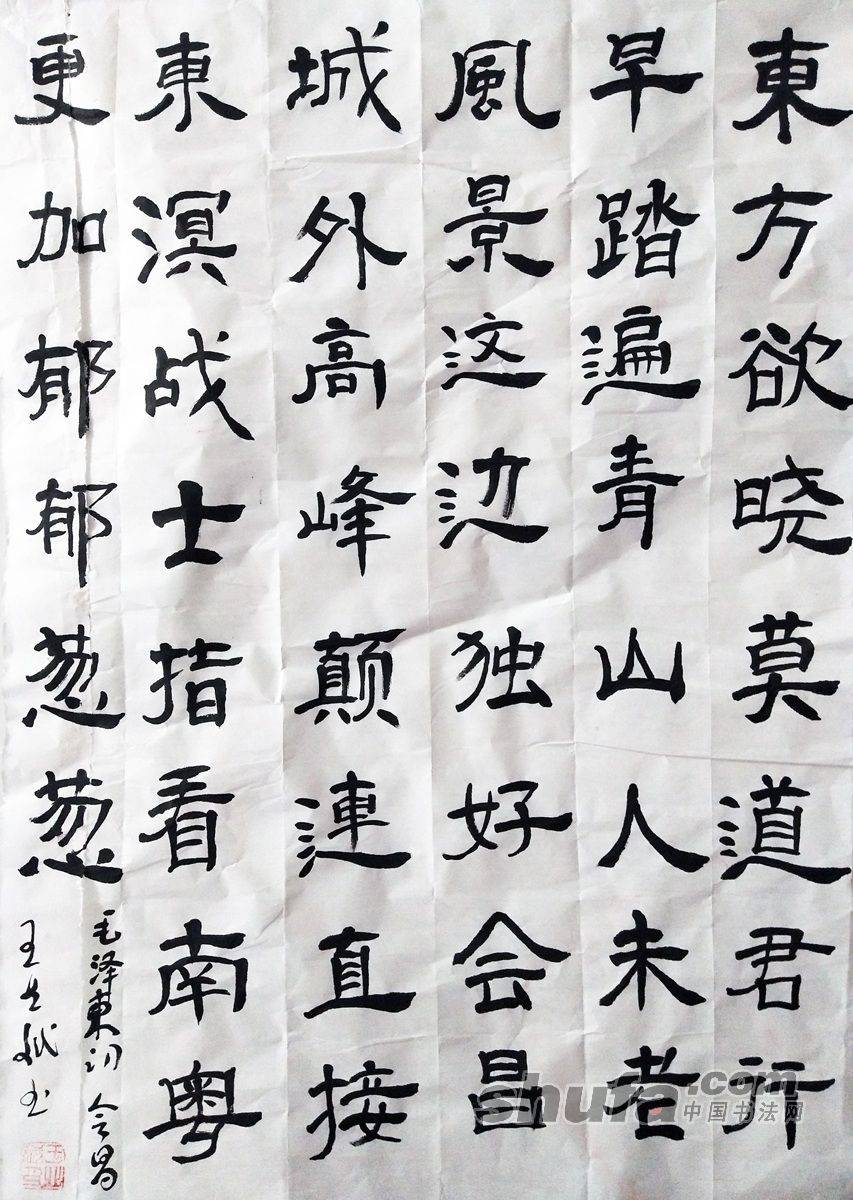 東方欲晓莫道君行
早踏遍青山人未老
風景这边独好会昌
城外高峰颠連直接
東溟战士指看南粤
更加郁郁葱葱
毛泽東词会昌
王 书
shufa.com
中国书法网